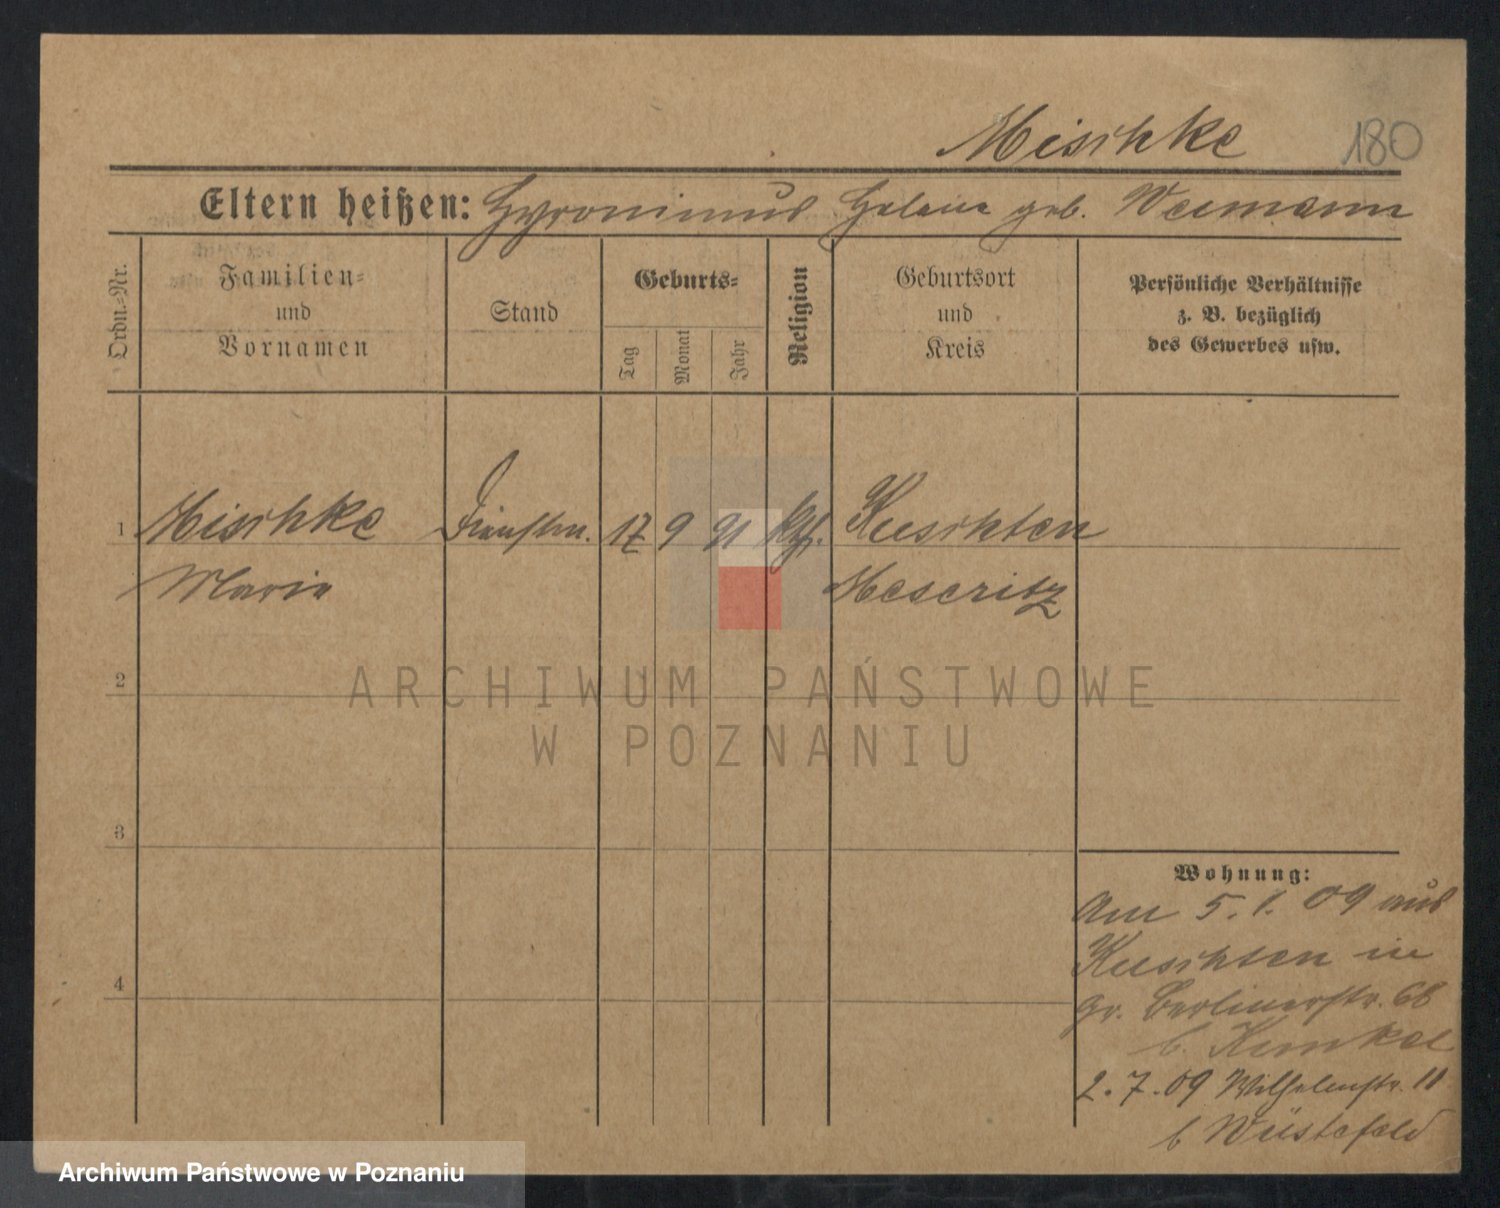 Mischke 180
Eltern heißen: Hyronimus Helene geb. Neumann
Ordn.-Nr.
Familien-
und
Vornamen
Stand
Geburts-
Tag
Monat
Jahr
Religion
Geburtsort
und
Kreis
Persönliche Verhältnisse
z. B. bezüglich
des Gewerbes usw.
1 Mischke Dienstm. 17 9 91 kth. Kuschten
Marie Meseritz
2
ARCHIWUM PAŃSTWOWE
W POZNANIU
3
4
Wohnung:
Am 5.1.09 aus
Kuschten in
gr. Berlinerstr. 68
b. Kunkel
2.7.09 Wilhelmstr. 11
b Wüstefeld
Archiwum Państwowe w Poznaniu